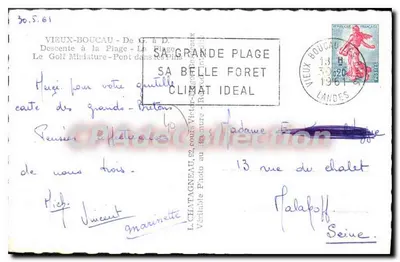 30.5.61
VIEUX-BOUCAU - De G. à D.
Descente à la Plage - La Plage
Le Golf Miniature - Pont dans
SA GRANDE PLAGE
SA BELLE FORET
CLIMAT IDEAL
VIEUX BOUCAU
1961
LANDES
Merci pour votre gentille
carte des grands-Bretons
Pensées
de nous trois.
Mich
Vincent
Marinette
L. CHATAGNEAU, 92, cours Victor
Véritable Photo au
Madame
13 rue du chalet
Malakoff
Seine.